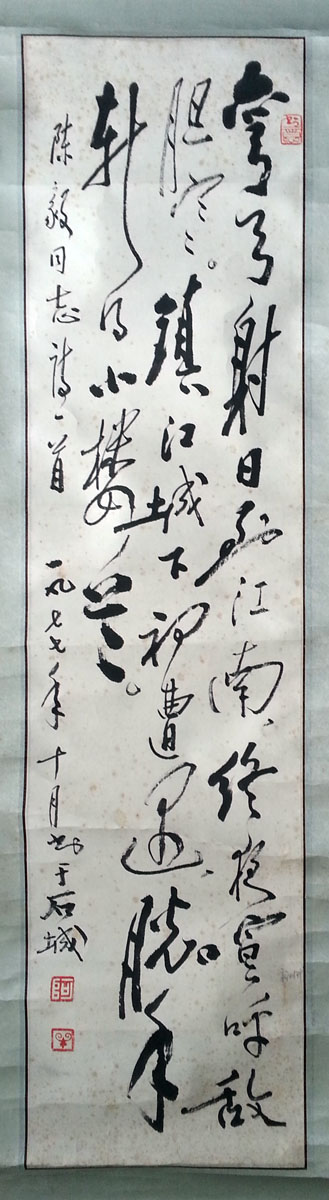 弯弓射日到江南、终夜喧呼敌
胆寒。镇江城下初遭遇、脱手
斩得小楼兰。
陈毅同志诗一首 一九七七年十月书于石城